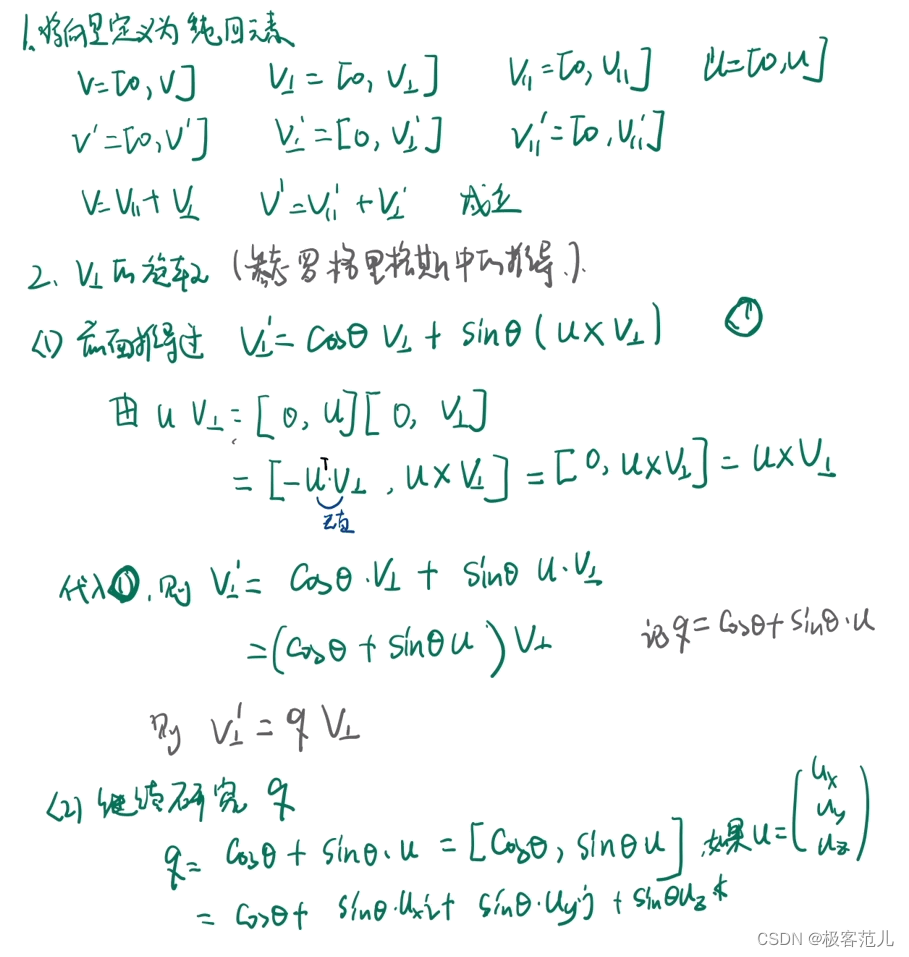 1.将向量定义为纯四元素
v=[0,v] v⊥=[0,v⊥] v∥=[0,v∥] u=[0,u]
v'=[0,v'] v⊥'=[0,v⊥'] v∥'=[0,v∥']
v=v∥+v⊥ v'=v∥'+v⊥' 成立
2、v⊥的旋转 (参考罗格里格斯中的推导.).
(1) 前面推导过 v⊥'=cosθ v⊥+sinθ(u×v⊥) ①
由 u v⊥=[0,u][0,v⊥]
=[-uᵀ·v⊥,u×v⊥]=[0,u×v⊥]=u×v⊥
垂直
代入①,则 v⊥'=cosθ·v⊥+sinθ u·v⊥
=(cosθ+sinθu)v⊥ 记q=cosθ+sinθ·u
则 v⊥'=q v⊥
(2) 继续研究 q
q=cosθ+sinθ·u=[cosθ,sinθu],如果u=(ux uy uz)
=cosθ+sinθ·uxi+sinθ·uyj+sinθuzk
CSDN @极客范儿